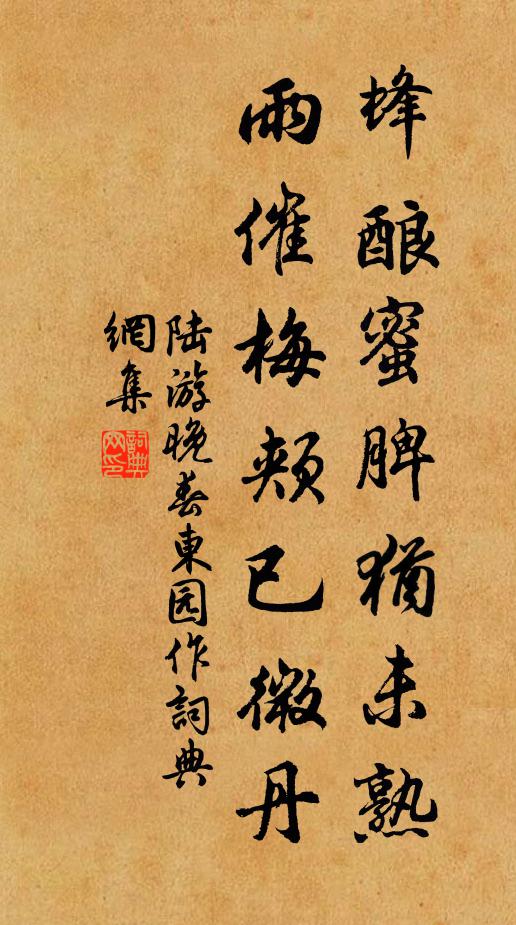 蜂酿蜜脾猶未熟
雨催梅颊已微丹
陆游晚春東园作詞典
網集
詞典
网印